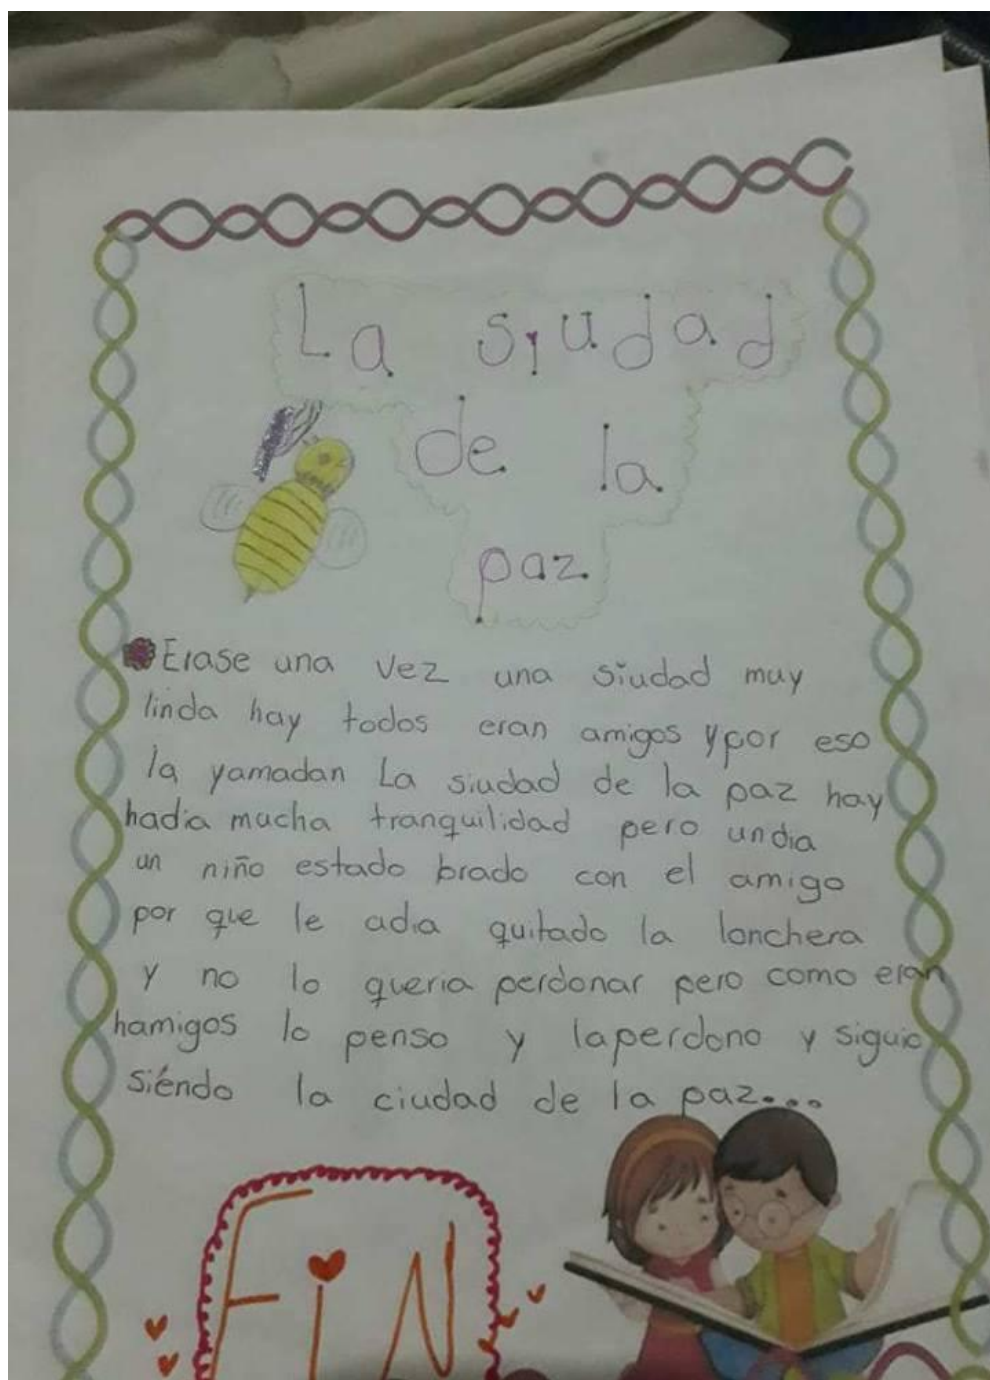 La siudad
de la
paz
Erase una vez una siudad muy
linda hay todos eran amigos y por eso
la yamadan La siudad de la paz hay
hadia mucha tranquilidad pero undia
un niño estado brado con el amigo
por que le adia quitado la lonchera
y no lo queria perdonar pero como eran
hamigos lo penso y laperdono y siguio
siéndo la ciudad de la paz...
FiN